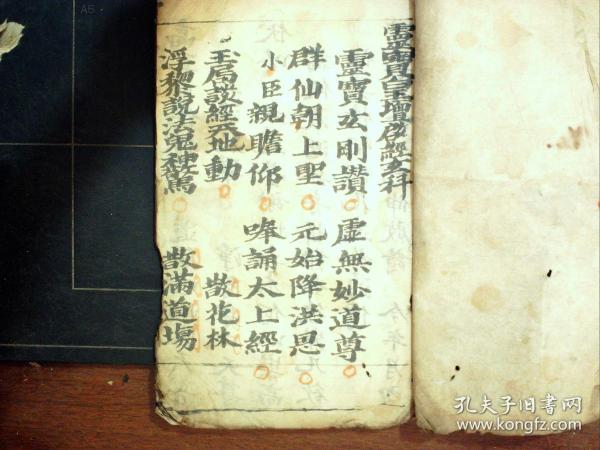 靈寶皇壇启經玄科
靈寶玄則讚 虛無妙道尊
群仙朝上聖 元始降洪恩
小臣親瞻仰 誦太上經
玉局談經天地動 散花林
浮黎說法鬼神驚 散滿道場
A5
孔夫子旧书网
www.kongfz.com